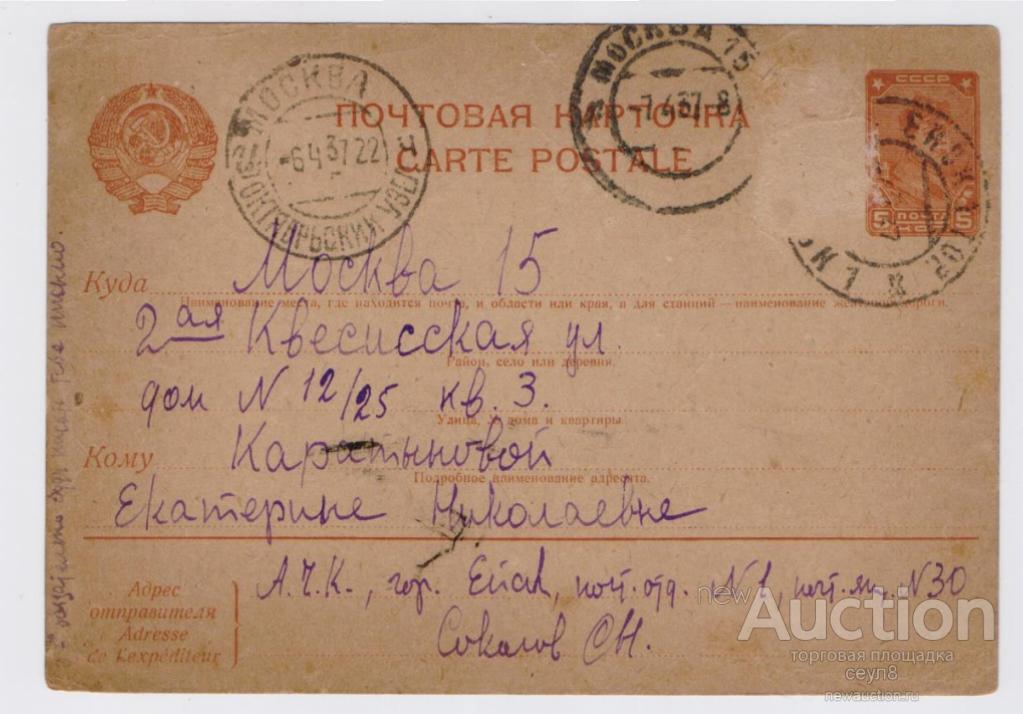 ПОЧТОВАЯ КАРТОЧКА
CARTE POSTALE
МОСКВА
-6 4 37 22
ОКТЯБРЬСКИЙ УЗЕЛ
МОСКВА 15
-7.4.37. 8
СССР
5 ПОЧТА 5
Куда Москва 15
Наименование места, где находится почта, и области или края, а для станций — наименование желдороги.
2ая Квесисская ул.
Район, село или деревня.
дом N 12/25 кв. 3.
Улица, № дома и квартиры.
Кому Каратыновой
Подробное наименование адресата.
Екатерине Николаевне
Адрес отправителя
Adresse de l'expéditeur
А.Ч.К., гор. Ейск, почт. отд. N 1, почт. ящ. N 30
Соколов С.Н.
newAuction
торговая площадка
сеул8
newauction.ru